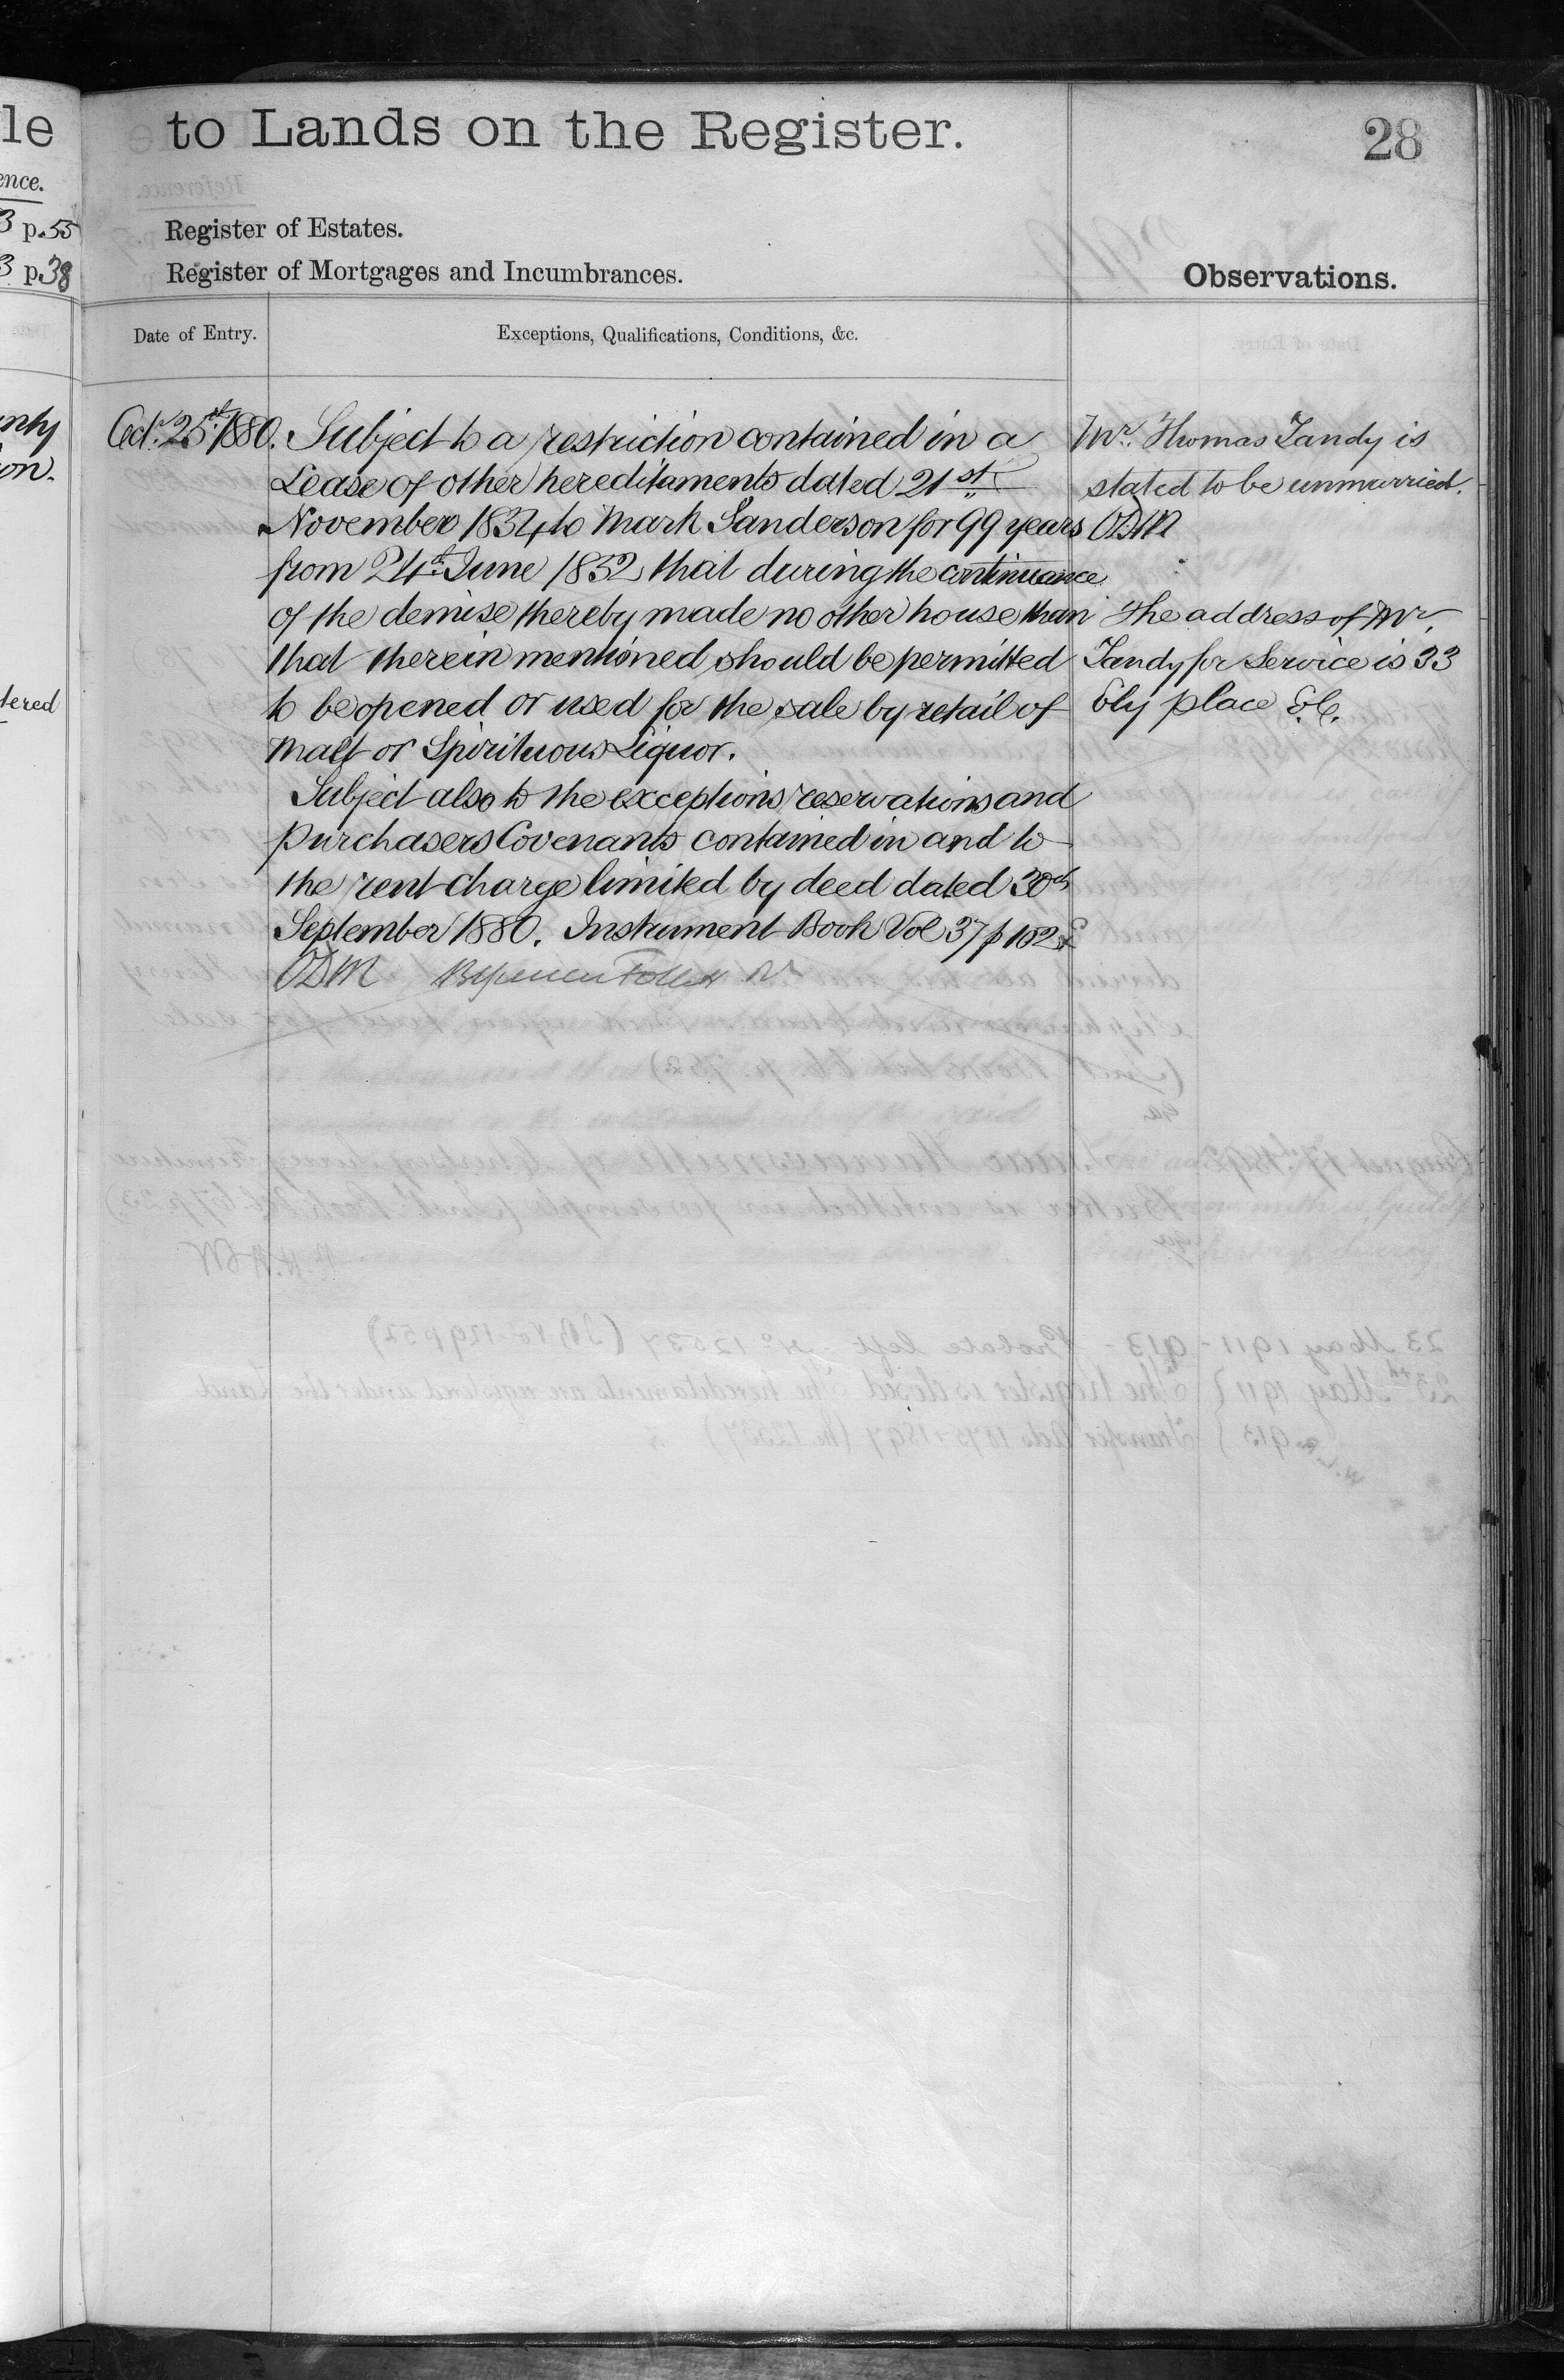 le
ence.
3 p.55
3 p.38
nty
on.
tered
to Lands on the Register.
28
Register of Estates.
Register of Mortgages and Incumbrances.
Observations.
Date of Entry.
Exceptions, Qualifications, Conditions, &c.
Oct.r 25th 1880.
Subject to a restriction contained in a
Lease of other hereditaments dated 21st
November 1834 to Mark Sanderson for 99 years
from 24th June 1832 that during the continuance
of the demise thereby made no other house than
that therein mentioned should be permitted
to be opened or used for the sale by retail of
Malt or Spirituous Liquor.
Subject also to the exceptions reservations and
Purchasers Covenants contained in and to
the rent charge limited by deed dated 30th
September 1880. Instrument Book Vol 37 p 102
ODM
Mr. Thomas Tandy is
stated to be unmarried.
ODM
The address of Mr.
Tandy for Service is 33
Ely place E.C.